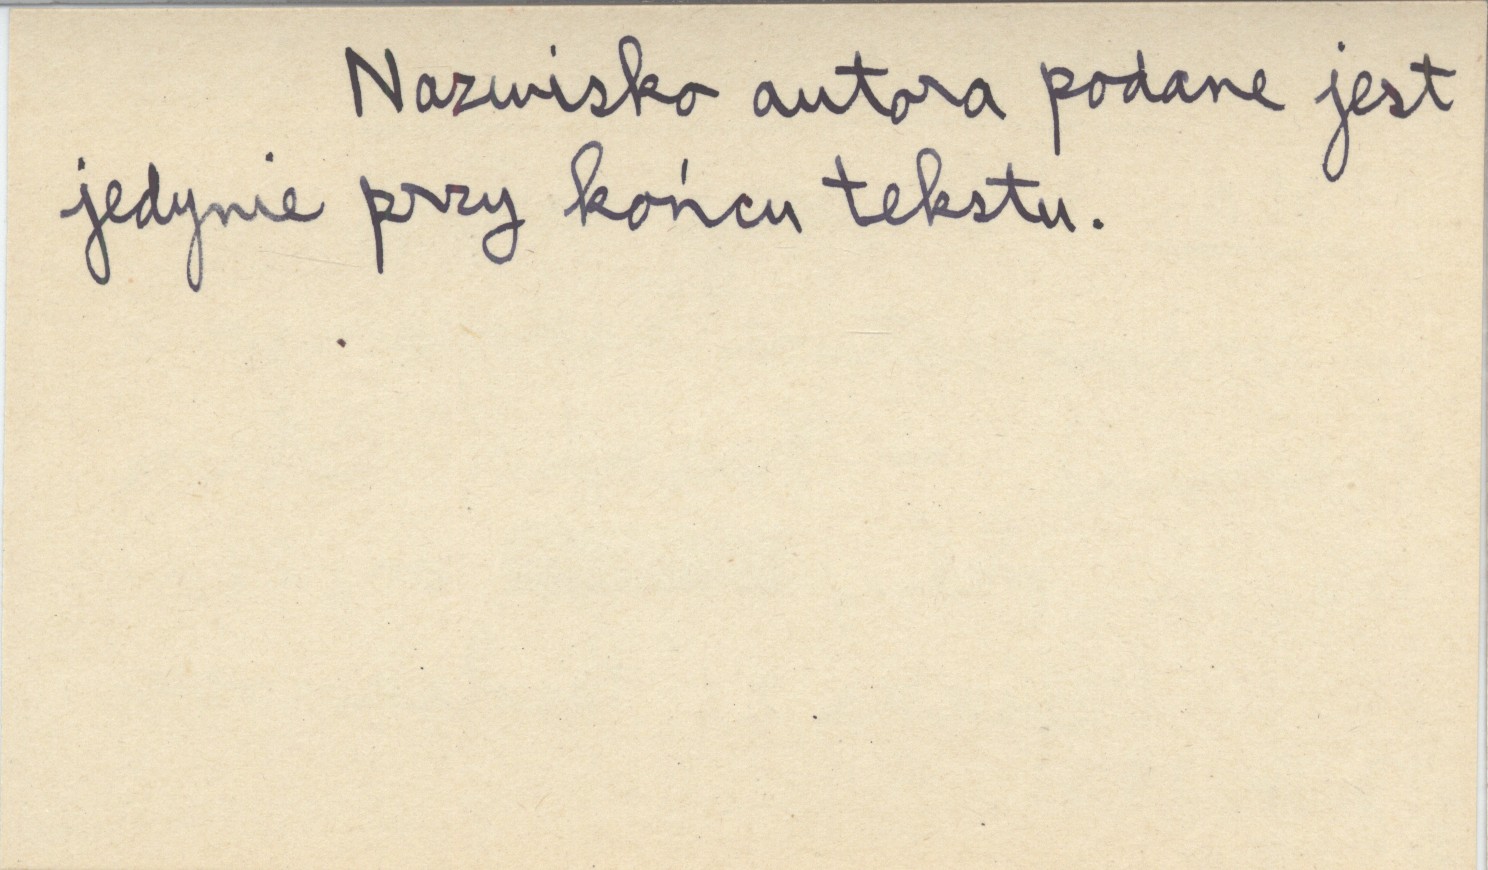 Nazwisko autora podane jest
jedynie przy końcu tekstu.